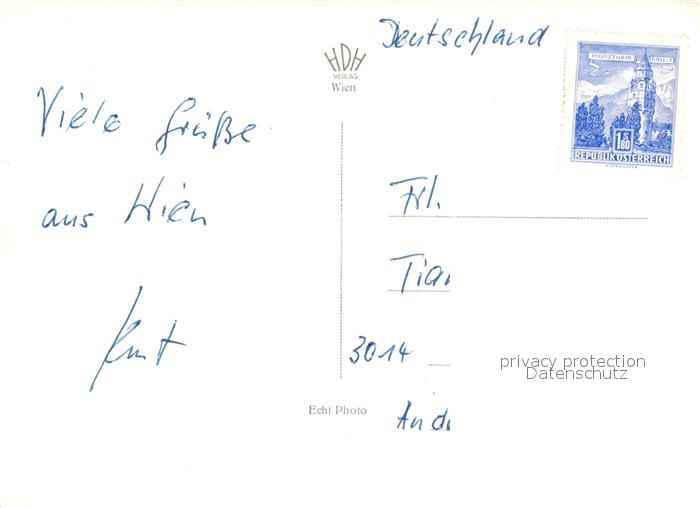 Deutschland
HDH
VERLAG
Wien
MÜNZTURM HALL i. T.
1.80
S
REPUBLIK ÖSTERREICH
Viele Grüße
aus Wien
Kurt
Frl.
Tian
3014
privacy protection
Datenschutz
Echt Photo
And